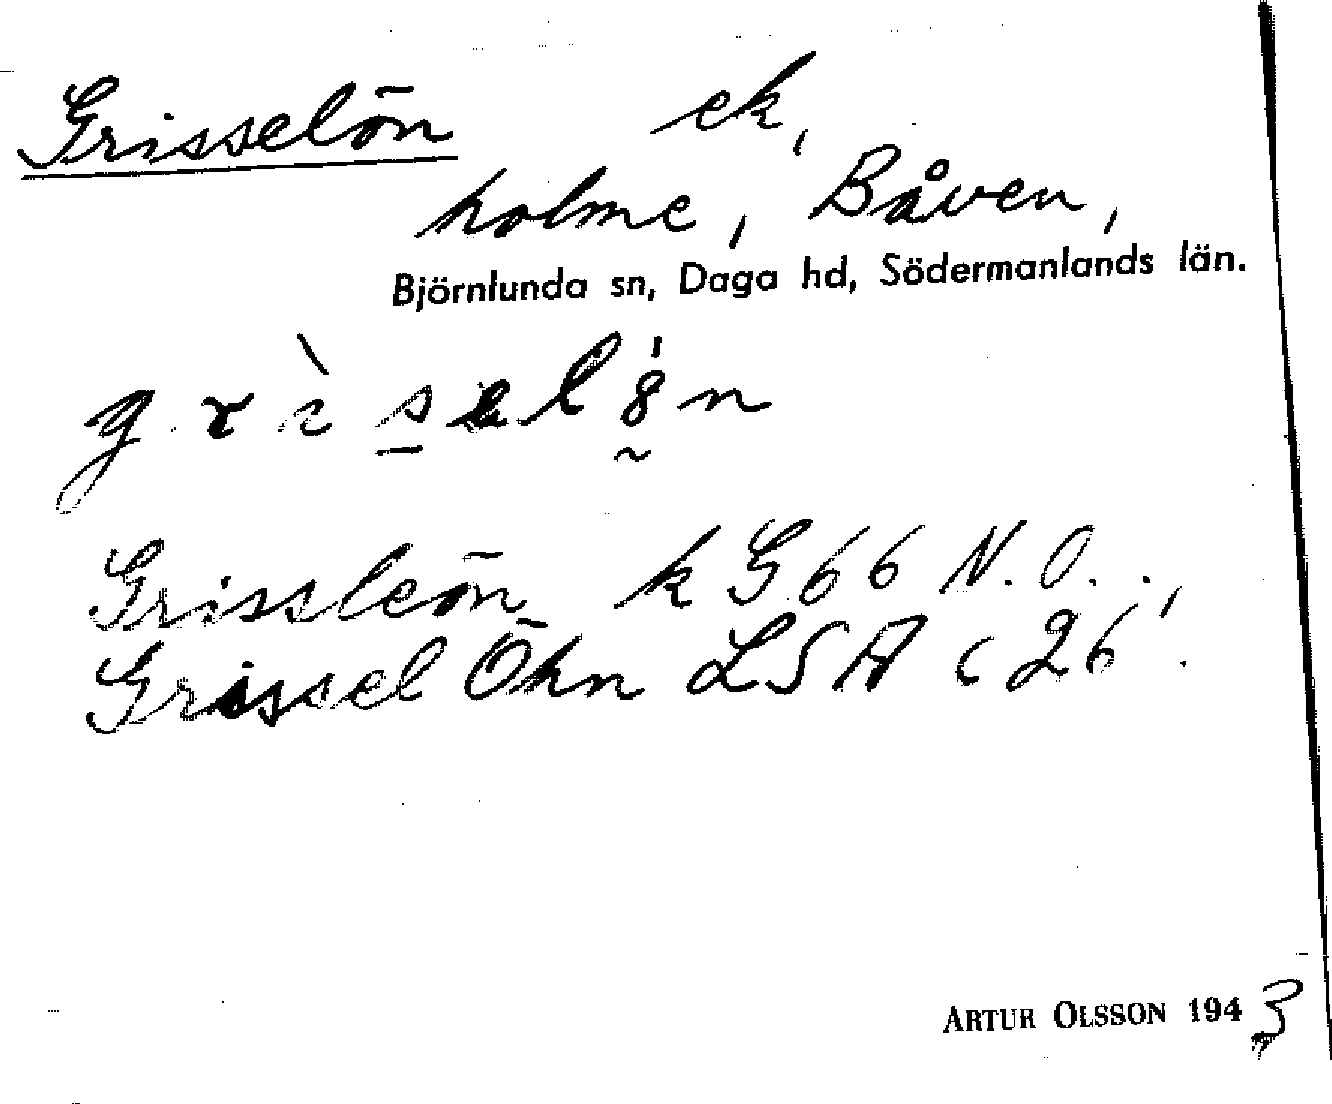 Grisselön ek,
holme, Båven,
Björnlunda sn, Daga hd, Södermanlands län.
grìsel8́n
Grissleön k G 66 N.O..,
Grissel Öhn LSA c 26.
ARTUR OLSSON 1943